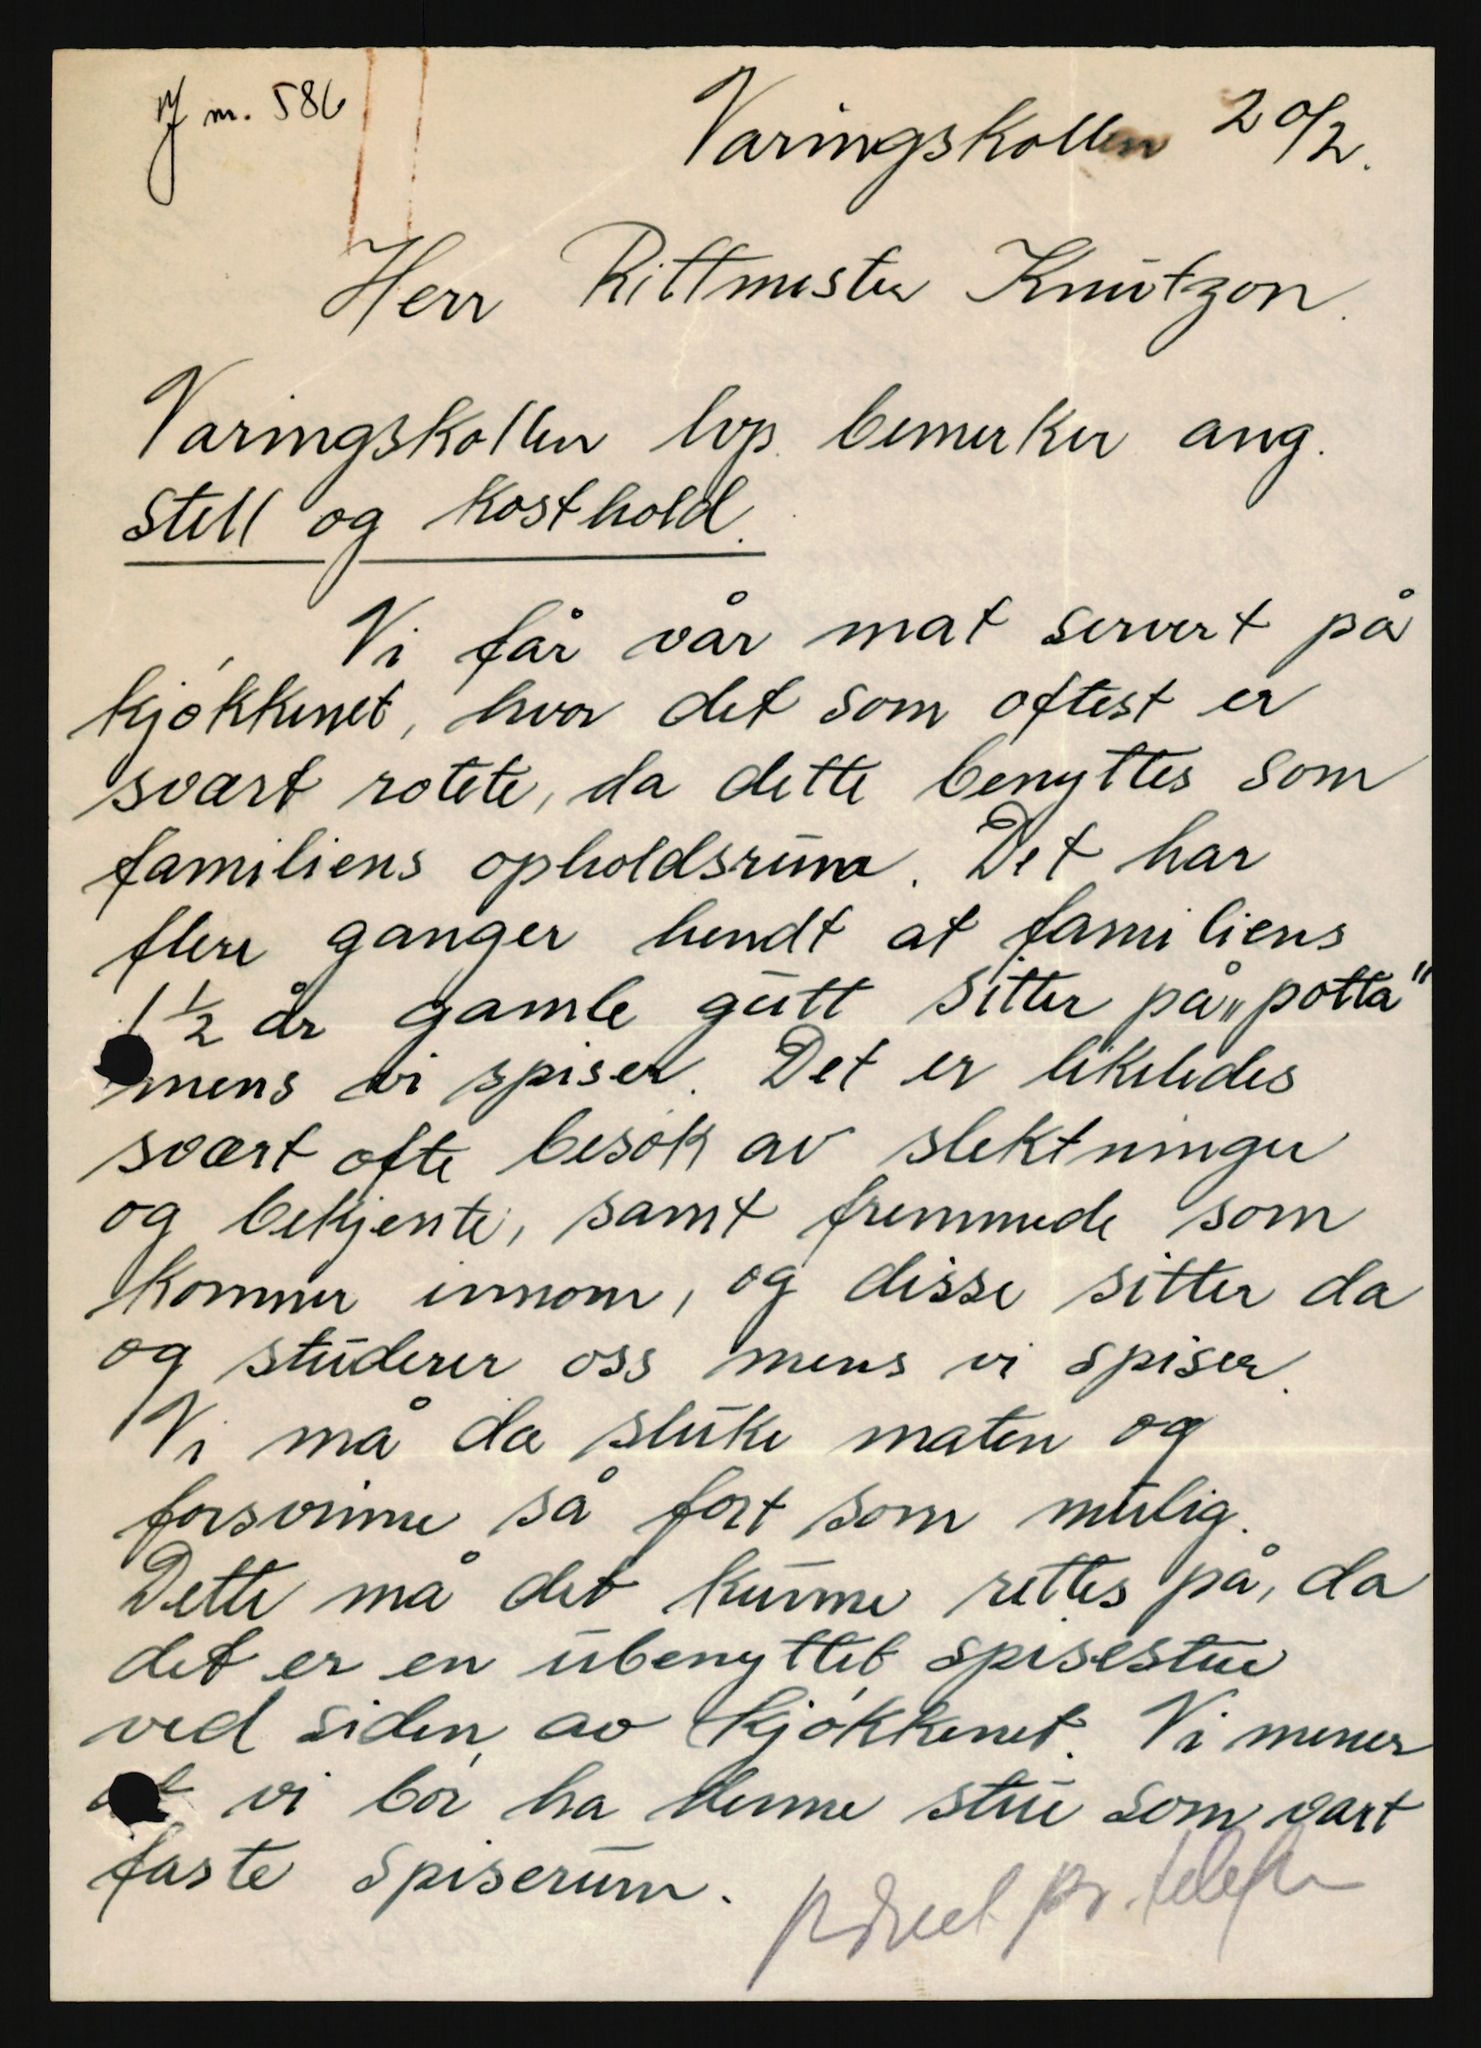 m. 586
Varingskollen 20/2.
Herr Rittmester Knutzon.
Varingskollen lvp. bemerker ang.
stell og kosthold.
Vi får vår mat servert på
kjøkkenet, hvor det som oftest er
svært rotete, da dette benyttes som
familiens opholdsrum. Det har
flere ganger hendt at familiens
1 1/2 år gamle gutt sitter på „potta"
mens vi spiser. Det er likeledes
svært ofte besøk av slektninger
og bekjente, samt fremmede som
kommer innom, og disse sitter da
og studerer oss mens vi spiser.
Vi må da sluke maten og
forsvinne så fort som mulig.
Dette må det kunne rettes på, da
det er en ubenyttet spisestue
ved siden av kjøkkenet. Vi mener
at vi bør ha denne stue som vart
faste spiserum.
pr. telefon